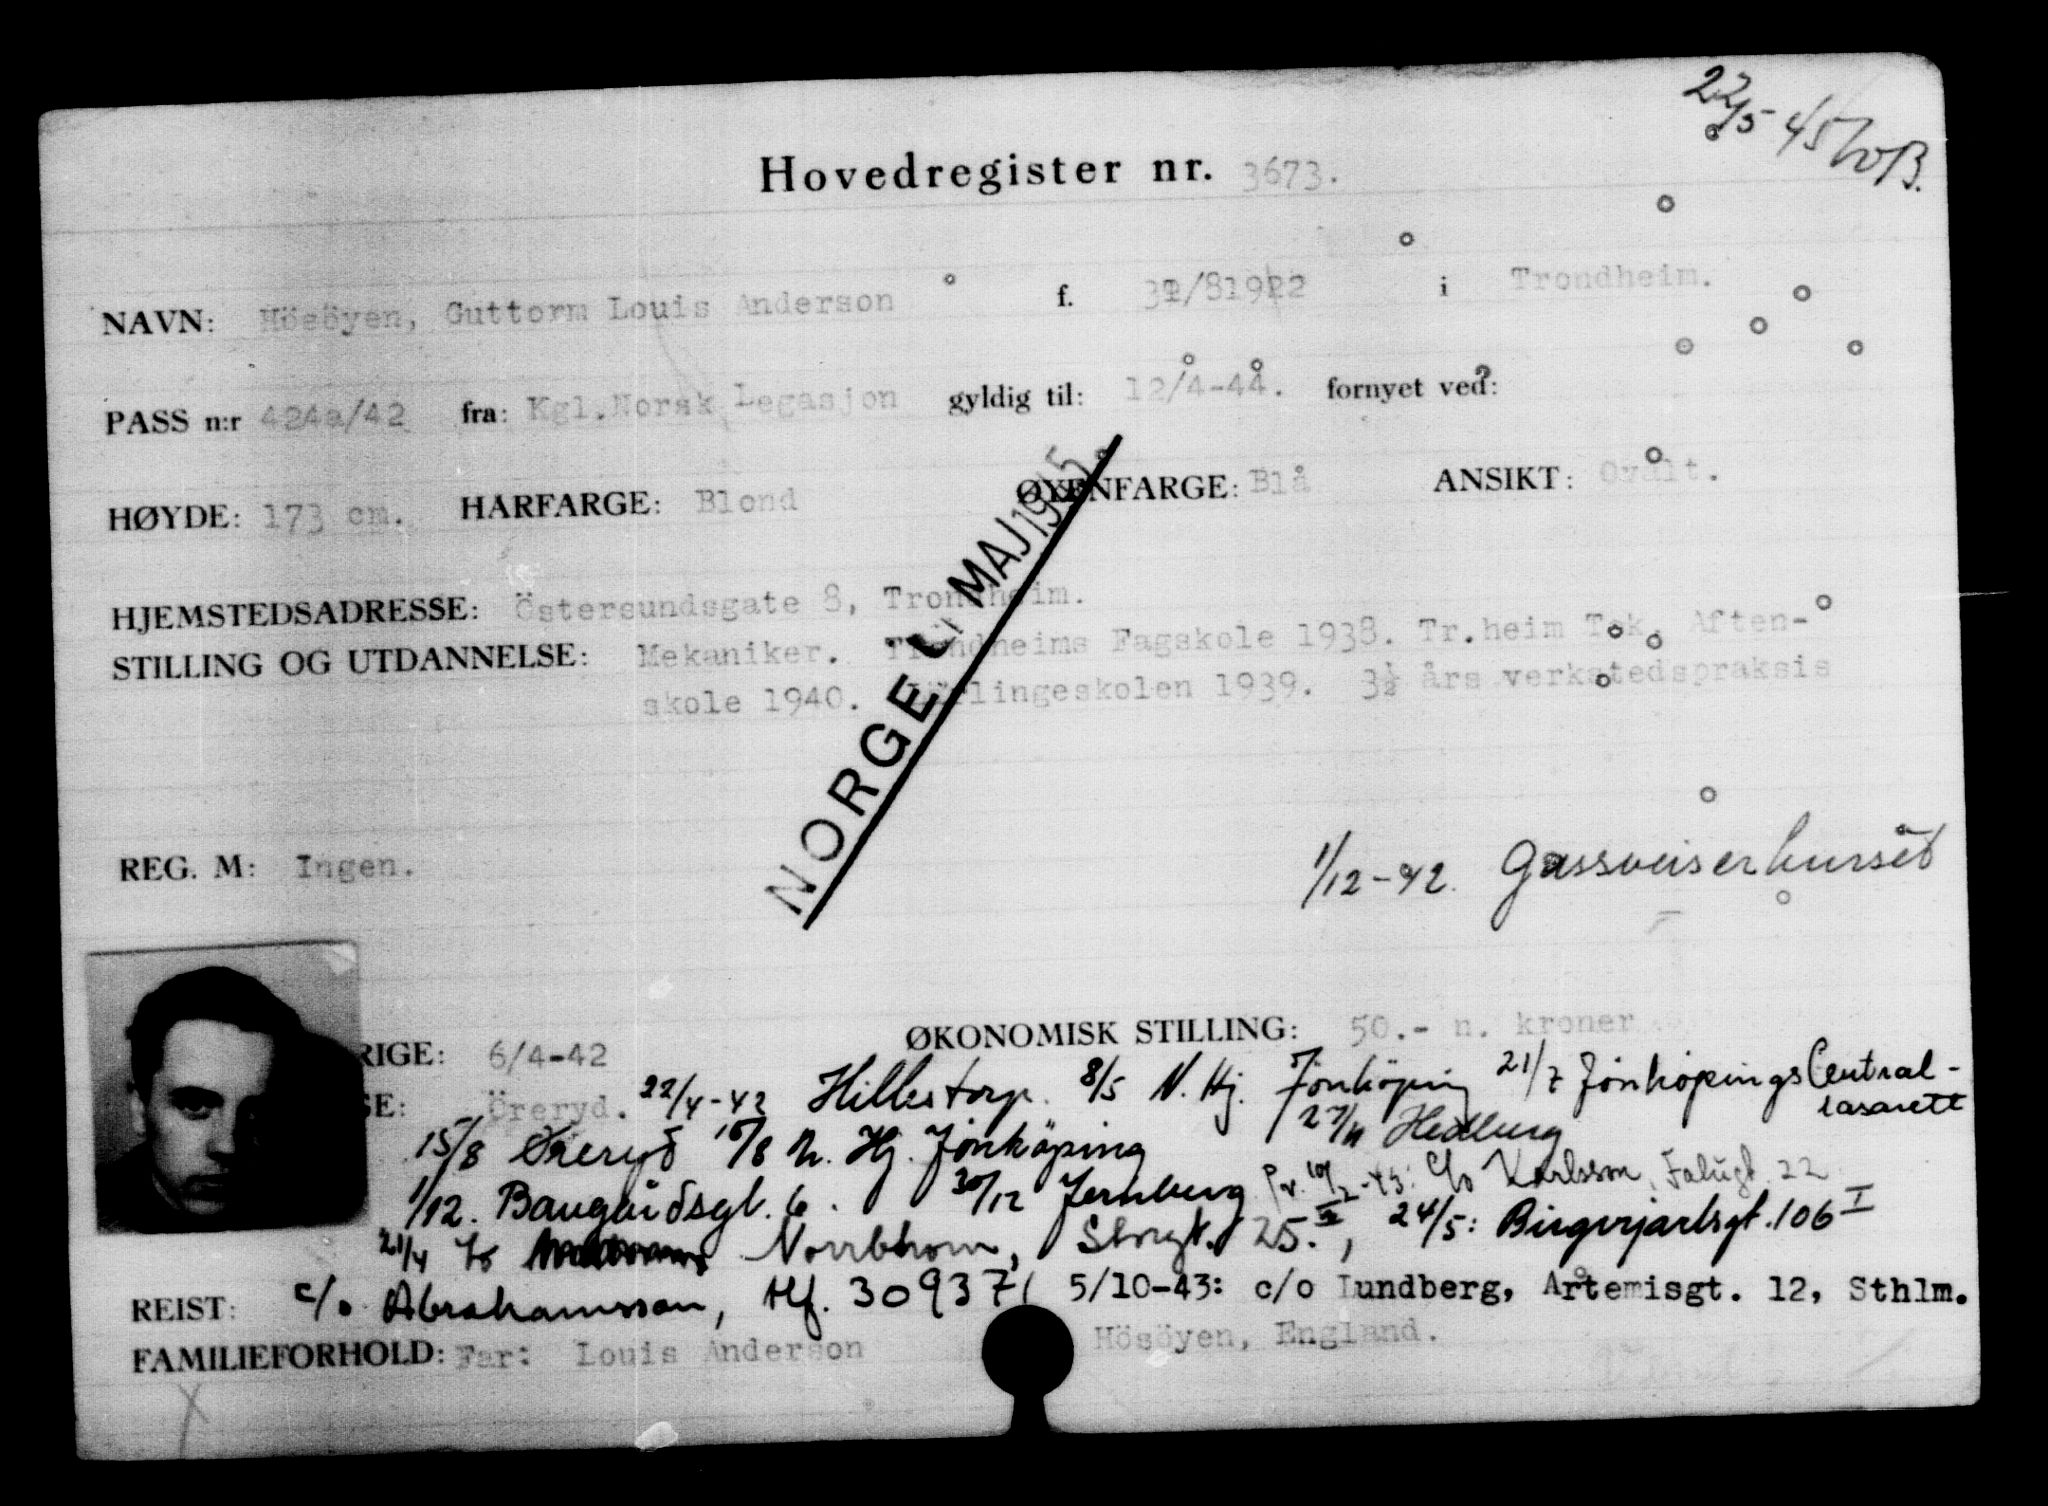 22/5-45/
Hovedregister nr. 3673.
NAVN: Hösöyen, Guttorm Louis Anderson f. /81922 i Trondheim.
PASS n:r 424a/42 fra: Kgl.Norsk Legasjon gyldig til: 12/4-44. fornyet ved:
HØYDE: 173 cm. HÅRFARGE: Blond ØYENFARGE: Blå ANSIKT: Ovalt.
NORGE MAJ 1945.
HJEMSTEDSADRESSE: Östersundsgate 8, Trondheim.
STILLING OG UTDANNELSE: Mekaniker. Trondheims Fagskole 1938. Tr.heim Tek. Aften-
skole 1940. Lärlingeskolen 1939. 3½ års verkstedspraksis
REG. M: Ingen.
1/12-42. Gassveiserkurset
RIGE: 6/4-42 ØKONOMISK STILLING: 50.- n. kroner
SE: Öreryd. 22/4-42 Hillestorp. 8/5 N. Hj. Jönköping 21/7 Jönköpings Central-
lasarett
15/8 Öreryd 18/8 N. Hj. Jönköping 27/11 Hedberg
1/12. Baugårdsgt. 6. 30/12 Jernberg 43: c/o Karlsson, Falugt. 22
21/4 Norrbhom, Storgt. 25. 24/5: Birgerjarlsgt. 106 I
REIST: c/o Abrahamsson, tlf. 309371 5/10-43: c/o Lundberg, Artemisgt. 12, Sthlm.
FAMILIEFORHOLD: Far: Louis Anderson Hösöyen, England.